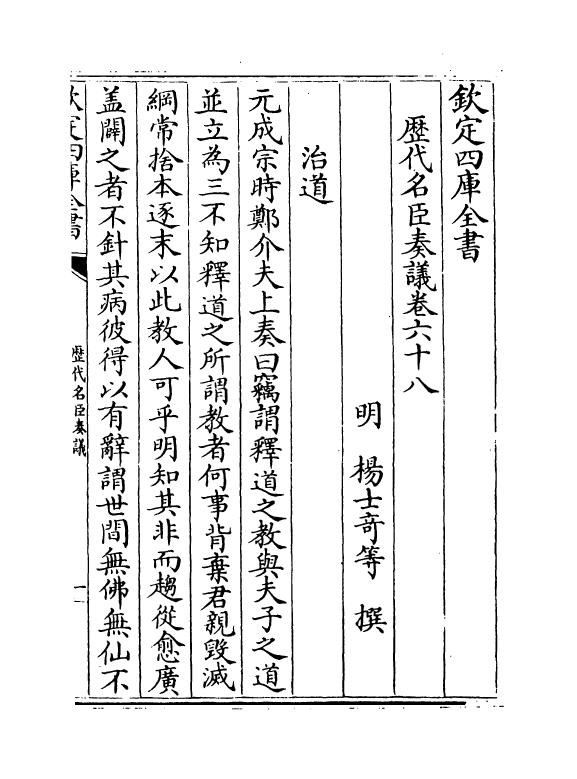 欽定四庫全書
歷代名臣奏議卷六十八
明 楊士奇等 撰
治道
元成宗時鄭介夫上奏曰竊謂釋道之教與夫子之道
並立為三不知釋道之所謂教者何事背棄君親毀滅
綱常捨本逐末以此教人可乎明知其非而趨從愈廣
盖闢之者不針其病彼得以有辭謂世間無佛無仙不
欽定四庫全書
歷代名臣奏議
一